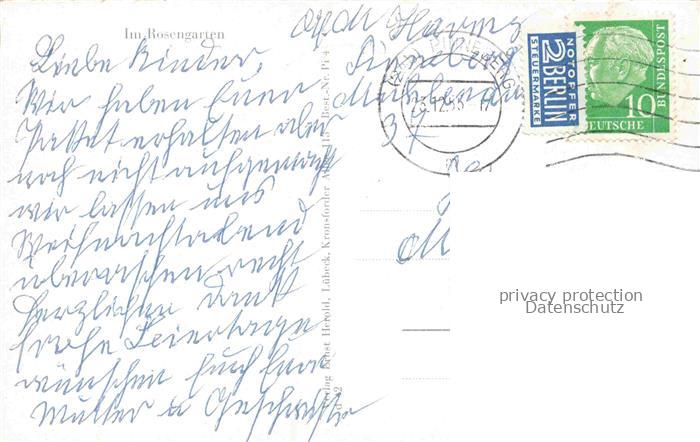 Im Rosengarten
Liebe Kinder,
Wir haben Euer
Paket erhalten aber
noch nicht aufgemacht
wir lassen uns
Weihnachtabend
überraschen recht
herzlichen Dank
frohe Feiertage
wünschen Euch Eure
Mutter u Geschwister
Abs. H. Harms
Pinneberg
37
Verlag Ernst Herold, Lübeck, Kronsforder
Best.-Nr. Pi 4
PINNEBERG
NOTOPFER
2 BERLIN
STEUERMARKE
10
DEUTSCHE
BUNDESPOST
privacy protection
Datenschutz